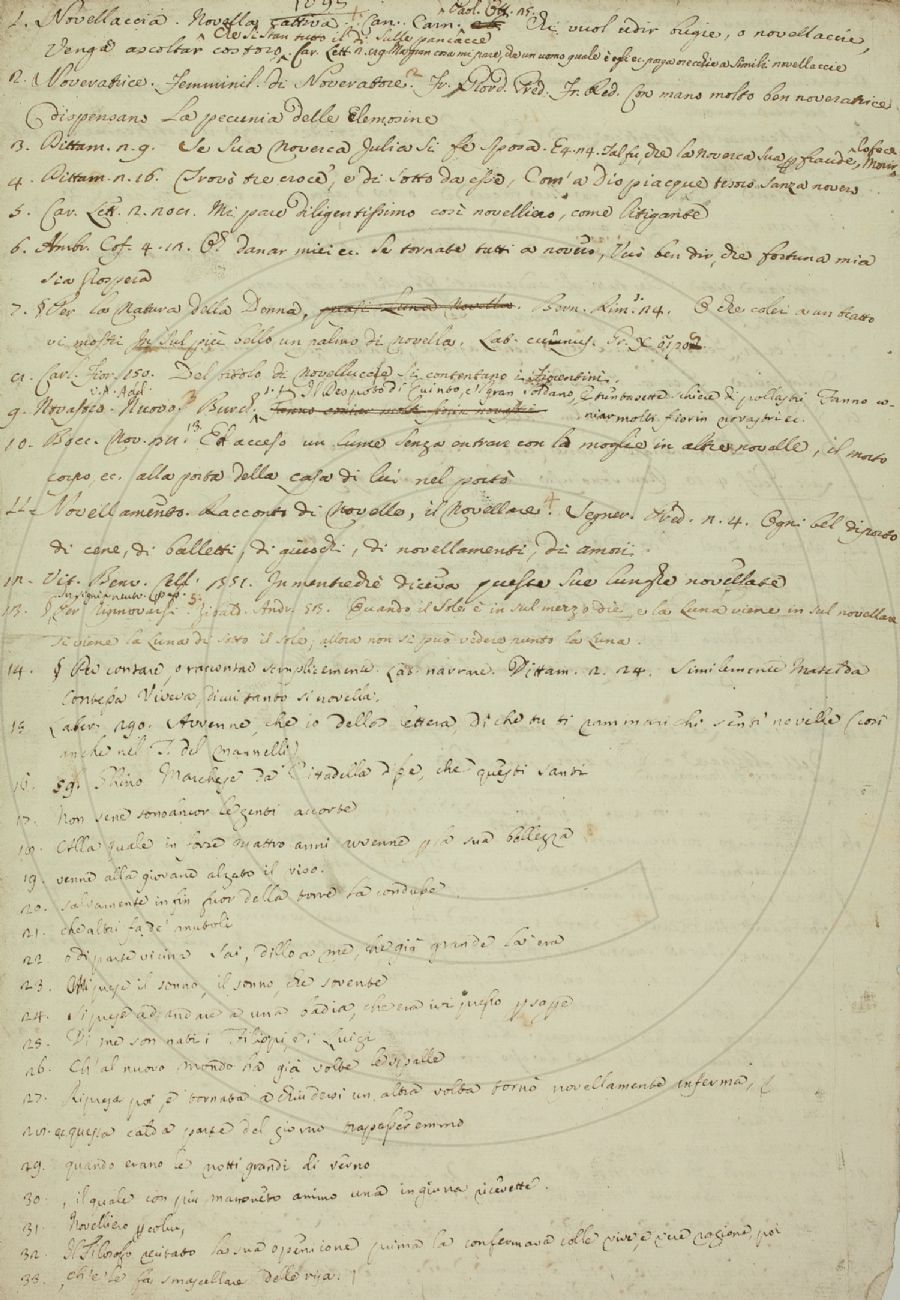 1093
1. Novellaccia. Novella cattiva. Can. Carn. Paol. Ott. 15. Chi vuol udir bugie, o novellaccie,
Venga ascoltar costoro, Che si stan tutto il dì sulle pancacce. Car. Lett. 2. 129. Maffian cosa mi pare, da un uomo quale è egli ec. paga orecchie a simili novellaccie
2. Noveratrice. Femminil. di Noveratore. Fr. Giord. Pred. Fr. Red. Con mano molto ben noveratrice
dispensano la pecunia delle Elemosine
3. Dittam. 2. 9. Se sua noverca Julia si fe sposa. E 4. 24. Tal fu, che la noverca sua p fraude, Lo fece morir
4. Dittam. 2. 16. Trovò tre croce, e di sotto da esse, Com' a Dio piacque tesoro sanza novero
5. Car. Lett. 2. Mi pare diligentissimo così novelliero, come litigante
6. Ambr. Cof. 4. danar miei ec. Se tornate tutti a novero, Può ben dir, che fortuna mia
sia prospera
7. § Per la Natura della Donna, quasi Luna Novella. Bern. Rim. 24. O che colei a un tratto
vi mostri In sul più bello un palmo di novella. Lat. cunnus.
Car. 150. Del titolo di Novelluccie si contentano i Fiorentini.
9. Novastro. Nuovo. Burch. 1. Il Despoto di Quinto, e 'l gran Soldano, E trentasette schiere di pollastri Fanno co-
niar molti fiorin novastri ec.
10. Bocc. Nov. Ed acceso un lume senza entrare con la moglie in altre novelle, il morto
corpo, ec. alla porta della casa di lui nel portò
11. Novellamento. Racconto di Novelle, il Novellare. Segner. Pred. 2. 4. Ogni bel diporto
di cene, di balletti, di giuochi, di novellamenti, di amori.
12. Vit. Benv. Cell. 351. Inmentreché diceva queste sue lunghe novellate
13. § Per Rinnovarsi. Andr. 53. Quando il Sole è in sul mezzo die, e la Luna viene in sul novellare
si viene la Luna di sotto il sole, allora non si può vedere punto la Luna.
14. § Per contare, o raccontar semplicemente. Lat. narrare. Dittam. 2. 24. Similemente Matelda
Contessa Viveva, di cui tanto si novella.
15. Laber. 290. Avvenne, che io dello lettera, di che tu ti rammarichi sentì novelle (così
anche nel T. del Mannelli)
16. Marchese da Cittadella disse, che questi santi
17. Non sene sono ancor le genti accorte
18. Colla quale in forse quattro anni avvenne p la sua bellezza
19. venne alla giovane alzato il viso.
20. salvamente infin fuor della torre la condusse
21. che altri fa de'
22. o di parte vicina sai, dillo a me, che già grande là era
23. Mi prese il sonno, il sonno, che sovente
24. si prese ad andare a una badia, che era ivi presso
25. Di me son nati i Filippi, e i Luigi
26. Ch' al nuovo mondo ha già volte le spalle
27. Ripresa poi, e tornata a chiudersi un altra volta tornò novellamente inferma,
28. e questa calda parte del giorno trapasseremmo
29. quando erano le notti grandi di verno
30. , il quale con più mansueto animo una ingiuria ricevette.
31. Novelliero
32. Il Filosofo recitato la sua openione prima la confermava colle vive, e vere ragioni, poi
33. , ch'e' le fa smascellare delle risa.